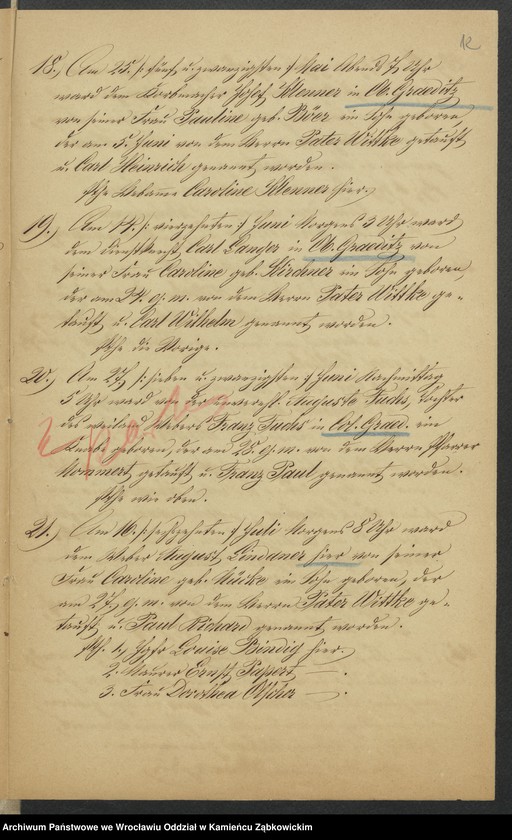 12
18.) Am 25. /: fünf u. zwanzigsten :/ Mai Abends 7 Uhr
ward dem Korbmacher Josef Klenner in Ob. Graeditz
von seiner Frau Pauline geb. Böer ein Sohn geboren,
der am 5. Juni von dem Herrn Pater Wittke getauft
u. Carl Heinrich genannt worden.
Hebamme Caroline Klenner hier.
19.) Am 14. /: vierzehnten :/ Juni Morgens 3 Uhr ward
dem Dienstknecht Carl Langer in Ob. Graeditz von
seiner Frau Caroline geb. Kirchner ein Sohn geboren,
der am 24. ej. m. von dem Herrn Pater Wittke ge-
tauft u. Carl Wilhelm genannt worden.
die Vorige.
20.) Am 27. /: sieben u. zwanzigsten :/ Juni Nachmittag
5 Uhr ward von der Auguste Fuchs, Tochter
des weiland Webers Franz Fuchs in Graed. ein
Knabe geboren, der am 28. ej. m. von dem Herrn Pfarrer
Kommert getauft u. Franz Paul genannt worden.
wie oben.
21.) Am 16. /: sechszehnten :/ Juli Morgens 8 Uhr ward
dem Weber August Lindauer hier von seiner
Frau Caroline geb. Mücke ein Sohn geboren, der
am 27. ej. m. von dem Herrn Pater Wittke ge-
tauft u. Paul Richard genannt worden.
1. Jgfr Louise Bindig hier.
2. Maurer Ernst —.
3. Frau Dorothea —.
Archiwum Państwowe we Wrocławiu Oddział w Kamieńcu Ząbkowickim